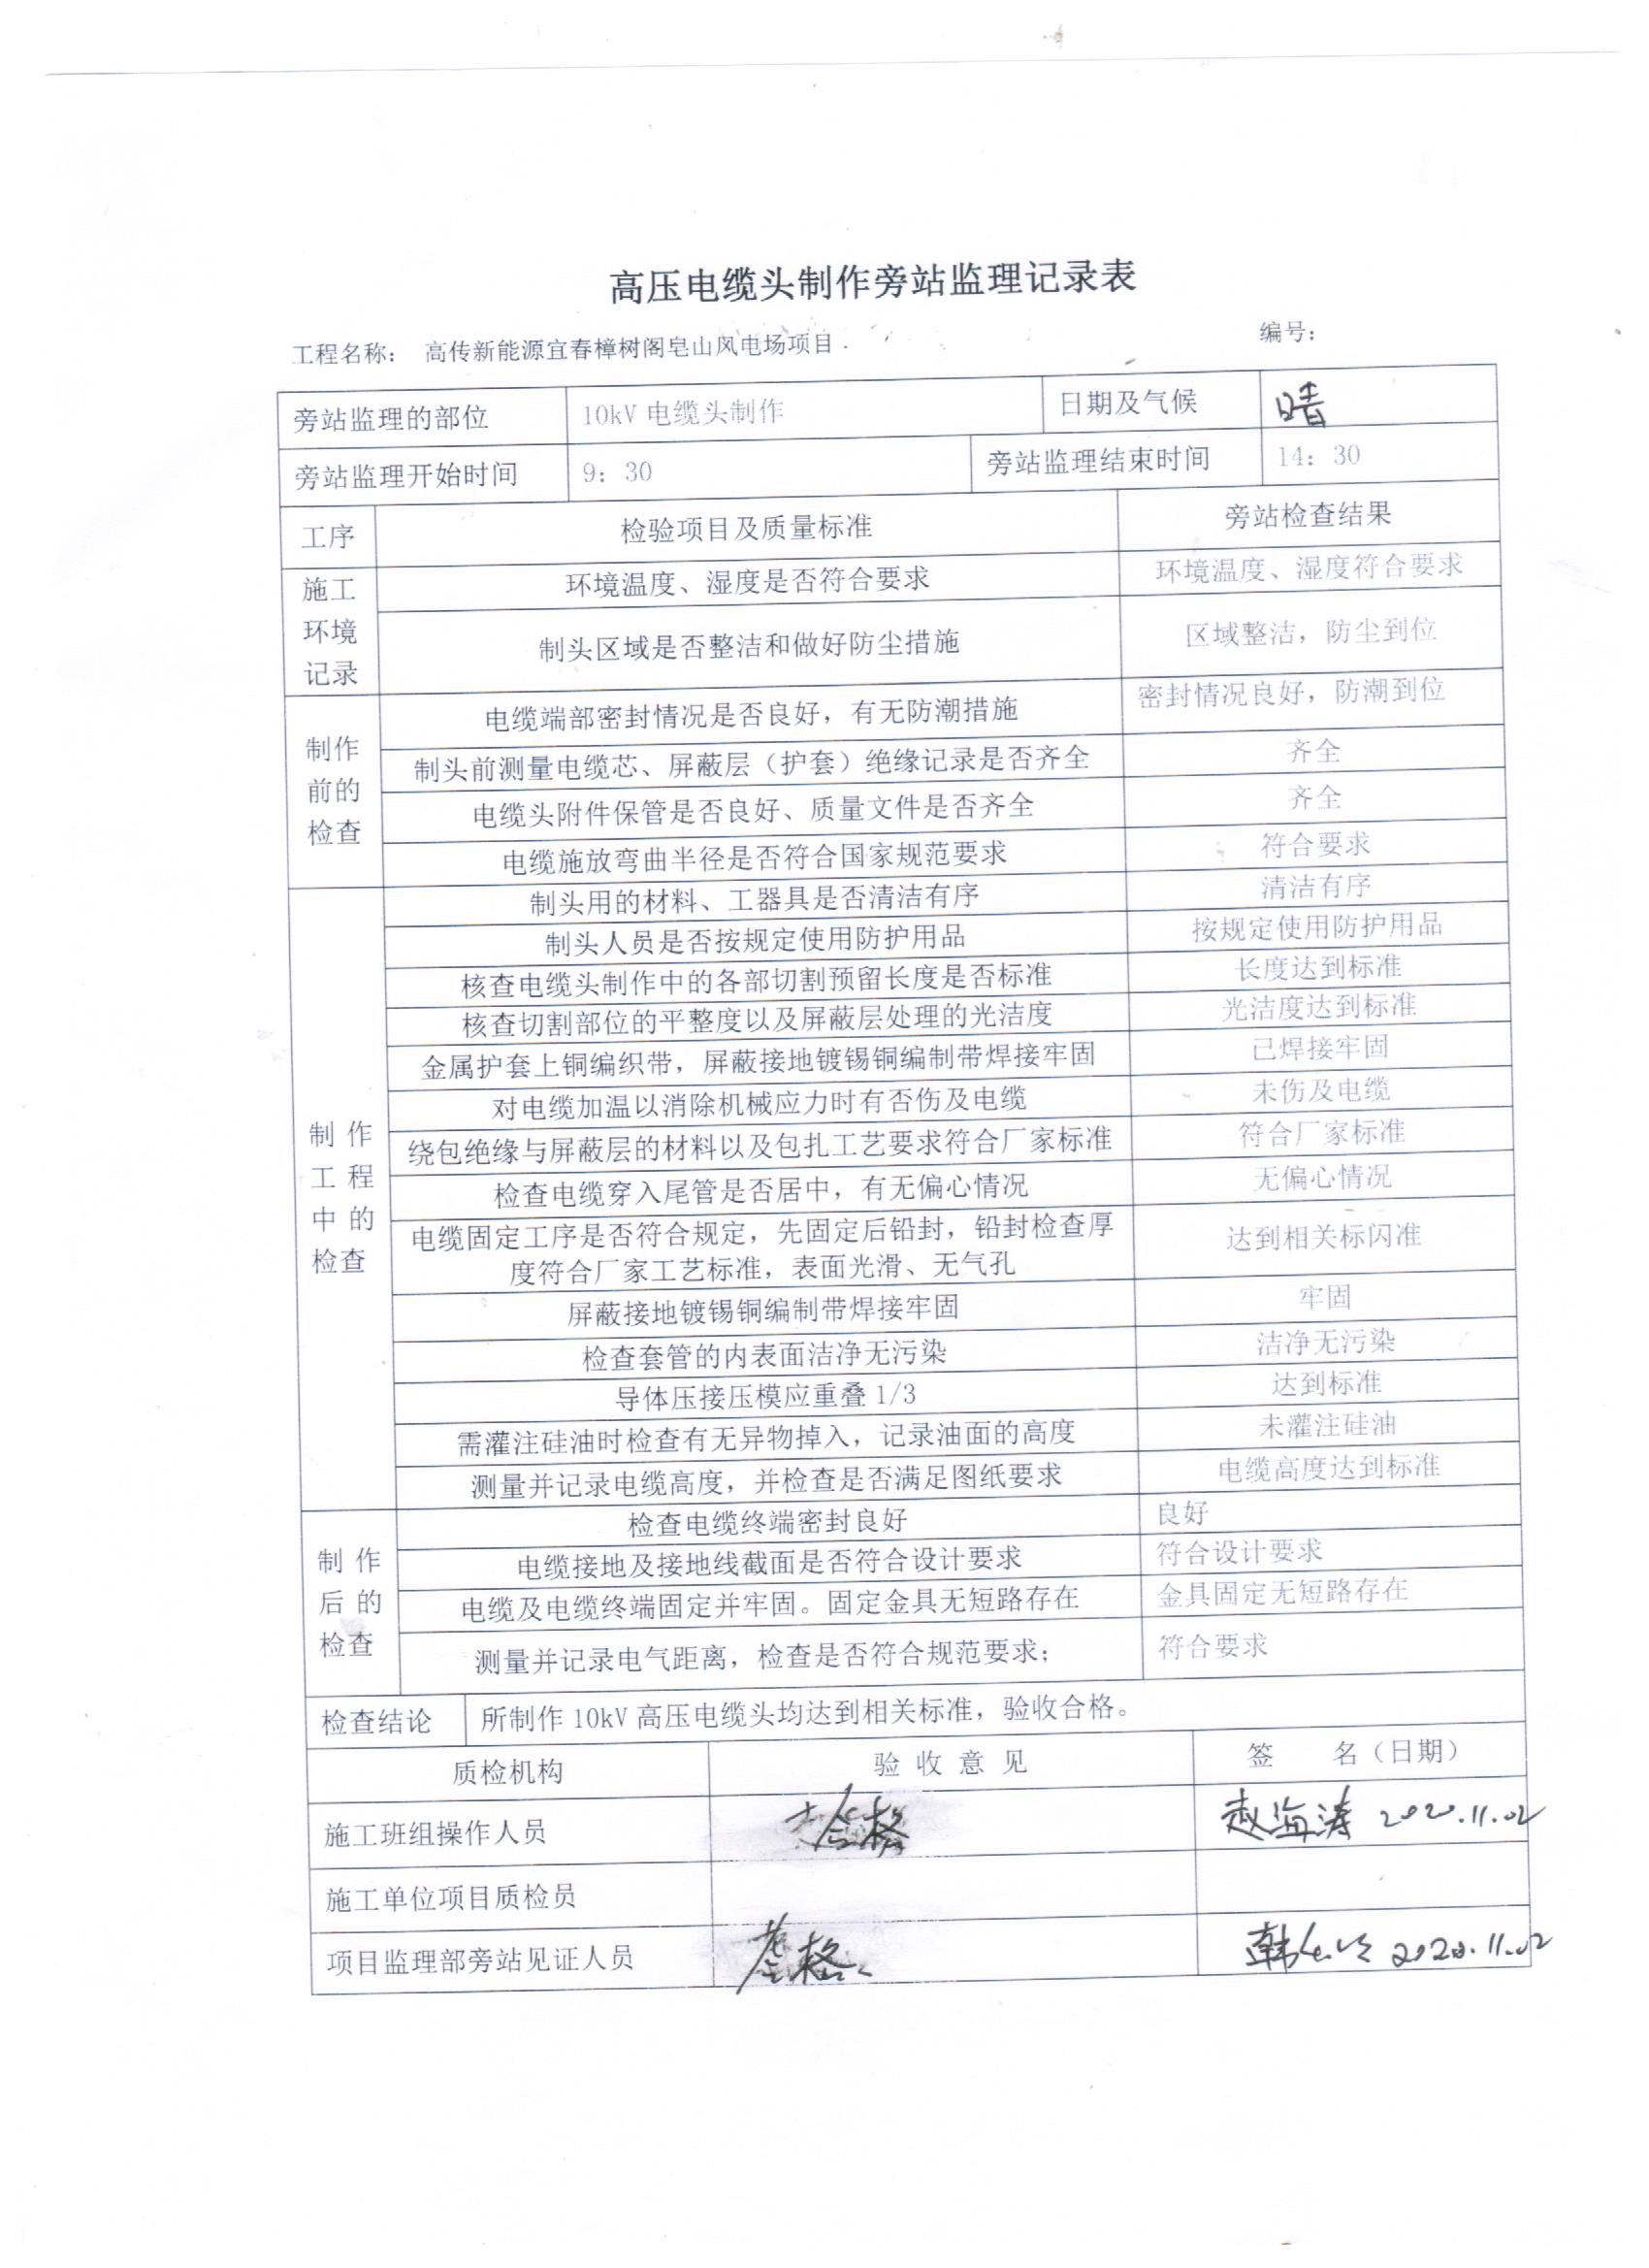 高压电缆头制作旁站监理记录表
工程名称： 高传新能源宜春樟树阁皂山风电场项目
编号：
旁站监理的部位 10kV 电缆头制作 日期及气候 晴
旁站监理开始时间 9：30 旁站监理结束时间 14：30
工序 检验项目及质量标准 旁站检查结果
施工
环境
记录
环境温度、湿度是否符合要求 环境温度、湿度符合要求
制头区域是否整洁和做好防尘措施 区域整洁，防尘到位
制作
前的
检查
电缆端部密封情况是否良好，有无防潮措施 密封情况良好，防潮到位
制头前测量电缆芯、屏蔽层（护套）绝缘记录是否齐全 齐全
电缆头附件保管是否良好、质量文件是否齐全 齐全
电缆施放弯曲半径是否符合国家规范要求 符合要求
制作
工程
中的
检查
制头用的材料、工器具是否清洁有序 清洁有序
制头人员是否按规定使用防护用品 按规定使用防护用品
核查电缆头制作中的各部切割预留长度是否标准 长度达到标准
核查切割部位的平整度以及屏蔽层处理的光洁度 光洁度达到标准
金属护套上铜编织带，屏蔽接地镀锡铜编制带焊接牢固 已焊接牢固
对电缆加温以消除机械应力时有否伤及电缆 未伤及电缆
绕包绝缘与屏蔽层的材料以及包扎工艺要求符合厂家标准 符合厂家标准
检查电缆穿入尾管是否居中，有无偏心情况 无偏心情况
电缆固定工序是否符合规定，先固定后铅封，铅封检查厚
度符合厂家工艺标准，表面光滑、无气孔 达到相关标闪准
屏蔽接地镀锡铜编制带焊接牢固 牢固
检查套管的内表面洁净无污染 洁净无污染
导体压接压模应重叠 1/3 达到标准
需灌注硅油时检查有无异物掉入，记录油面的高度 未灌注硅油
测量并记录电缆高度，并检查是否满足图纸要求 电缆高度达到标准
制作
后的
检查
检查电缆终端密封良好 良好
电缆接地及接地线截面是否符合设计要求 符合设计要求
电缆及电缆终端固定并牢固。固定金具无短路存在 金具固定无短路存在
测量并记录电气距离，检查是否符合规范要求； 符合要求
检查结论 所制作 10kV 高压电缆头均达到相关标准，验收合格。
质检机构 验收意见 签 名（日期）
施工班组操作人员 合格 赵海涛 2020.11.02
施工单位项目质检员
项目监理部旁站见证人员 格 韩 2020.11.02